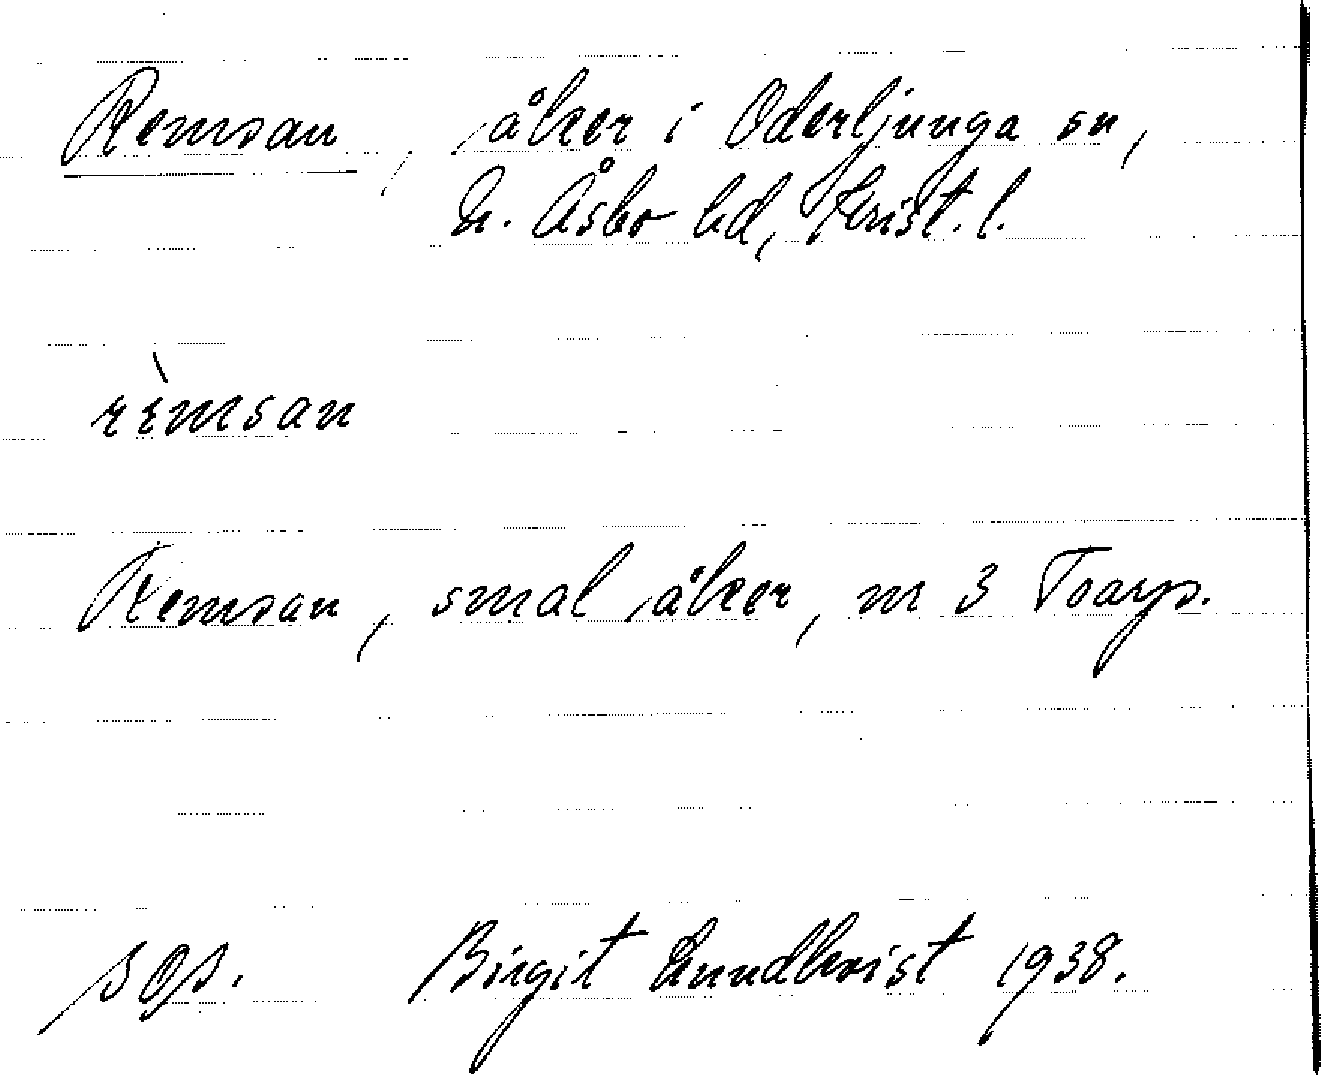 Remsan, åker i Oderljunga sn,
N. Åsbo hd, Krist. l.
rèmsan
Remsan, smal åker, m 3 Toarp.
Birgit Lundkvist 1938.